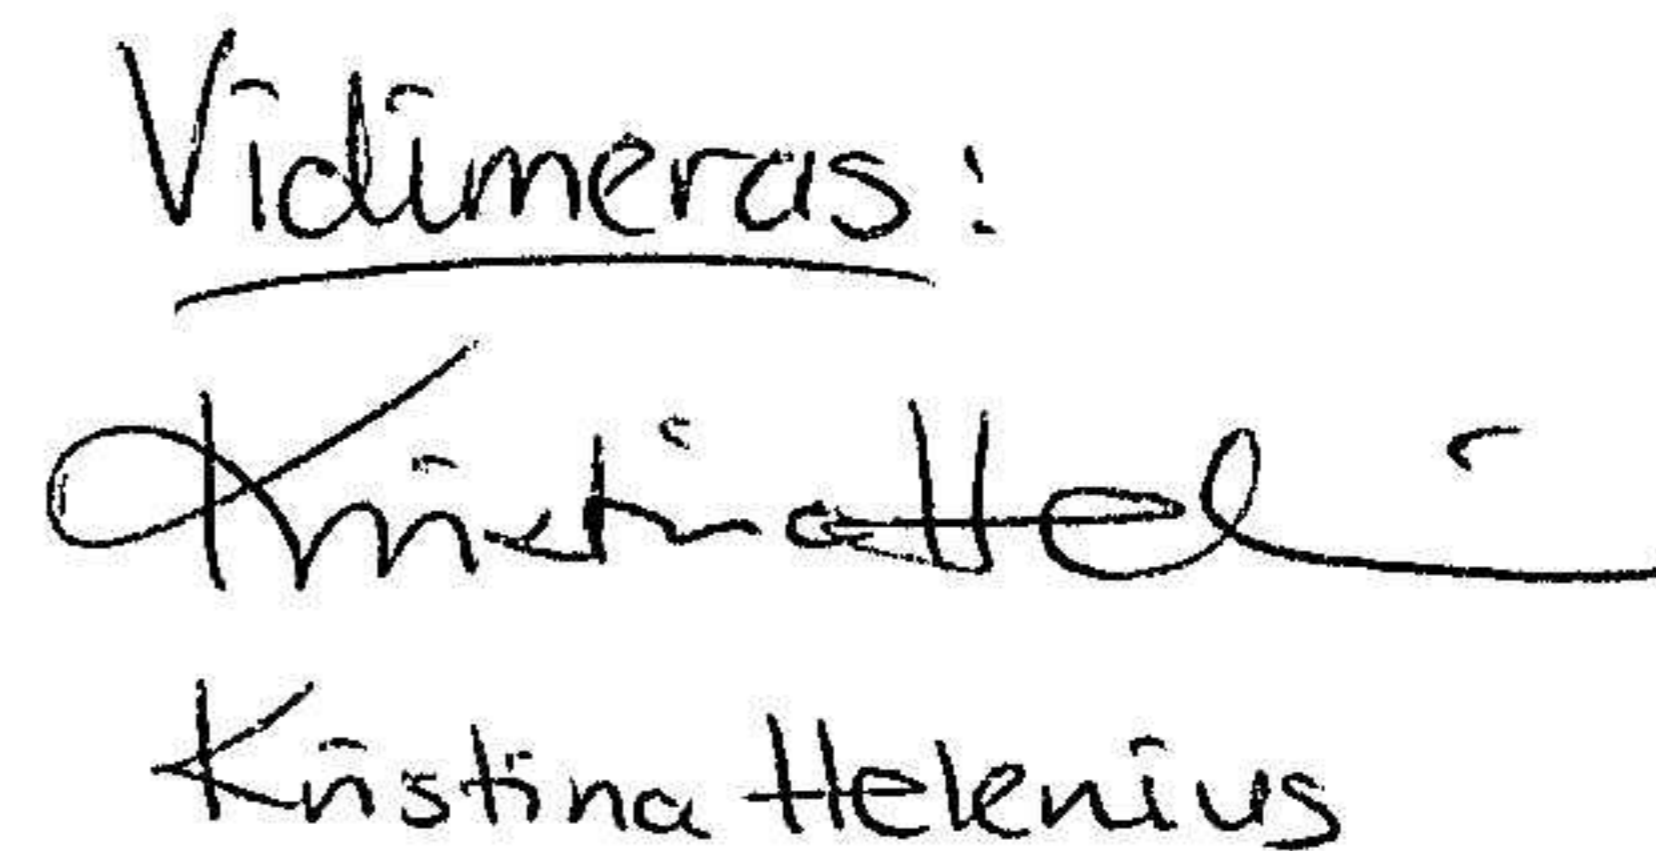 Vidimeras:
Kristina Heli
Kristina Helenius